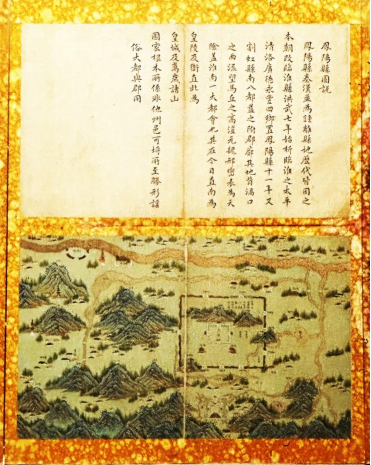 鳳陽縣圖說
鳳陽縣秦漢並為鍾離縣地歷代皆因之
本朝改臨淮縣洪武七年始析臨淮之太平
清洛廣德永豐四鄉置鳳陽縣十一年又
割虹縣南八都益之附郭府其地首渦口
之馬丘之高邢巒表為天
險蓋淮南一大都會也其在今日直南為
皇陵及衛直北為
皇城及萬歲諸山
國家根本所係非他州邑可至勝形謡
俗大都與郡同